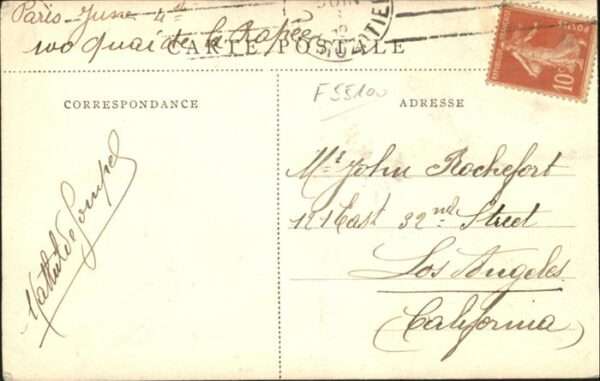 Paris June 4th
100 Quai de la Rapée
CARTE POSTALE
JUIN
10c
F55100
CORRESPONDANCE
ADRESSE
Mr John Rochefort
121 East 32nd Street
Los Angeles
California